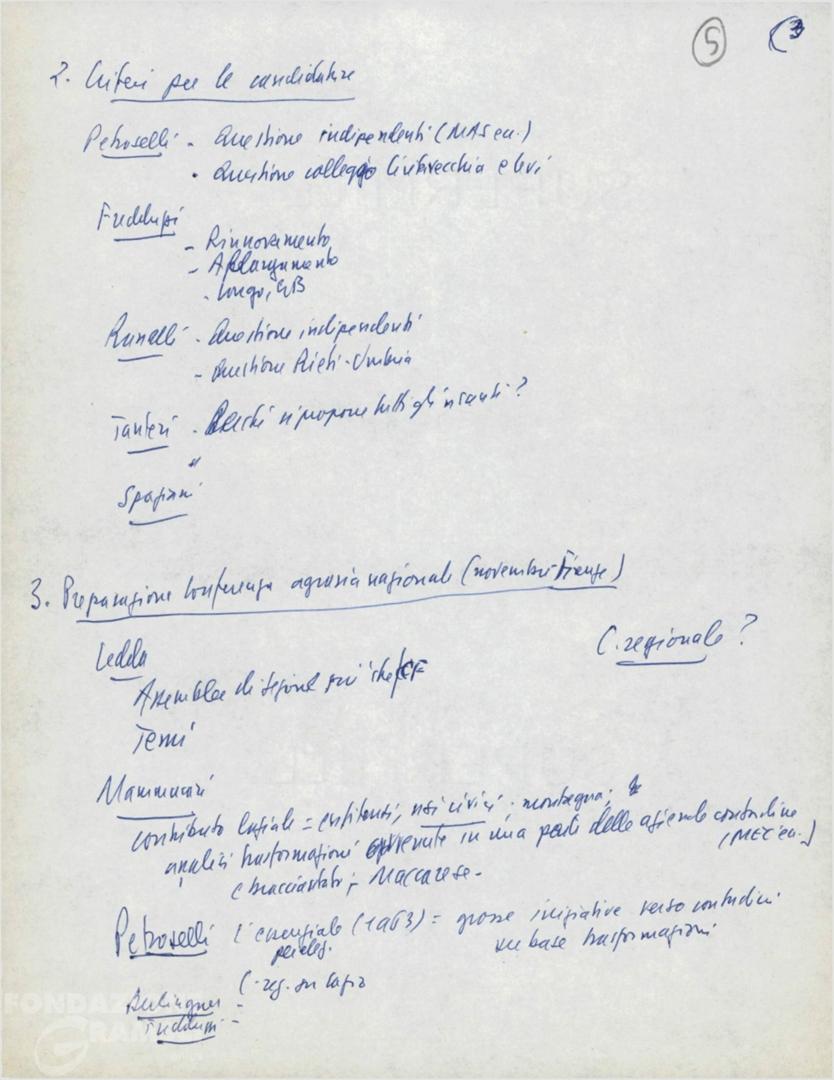 5 3
2. Criteri per le candidature
Petroselli - Questione indipendenti (MAS ecc.)
- Questione collegio Civitavecchia e
Freddupi
- Rinnovamento
- Allargamento
- Longo, EB
Ranalli - Questione indipendenti
- Questione Rieti-Umbria
Tanteri - Perché si propone tutti gli uscenti?
"
Spaziani
3. Preparazione Conferenza agraria nazionale (novembre-Firenze)
C. regionale?
Ledda
Assemblea di CF
Temi
Mammucari
contributo laziale = enfiteusi, usi civici, montagna;
analisi trasformazioni avvenute in una parte delle aziende contadine
(MEC ecc.)
(braccianti); Maccarese.
Petroselli L'essenziale (1963) = grosse iniziative verso contadini
su base trasformazioni
Berlinguer - C. reg. su
Freddupi -
FONDAZ
GRAM